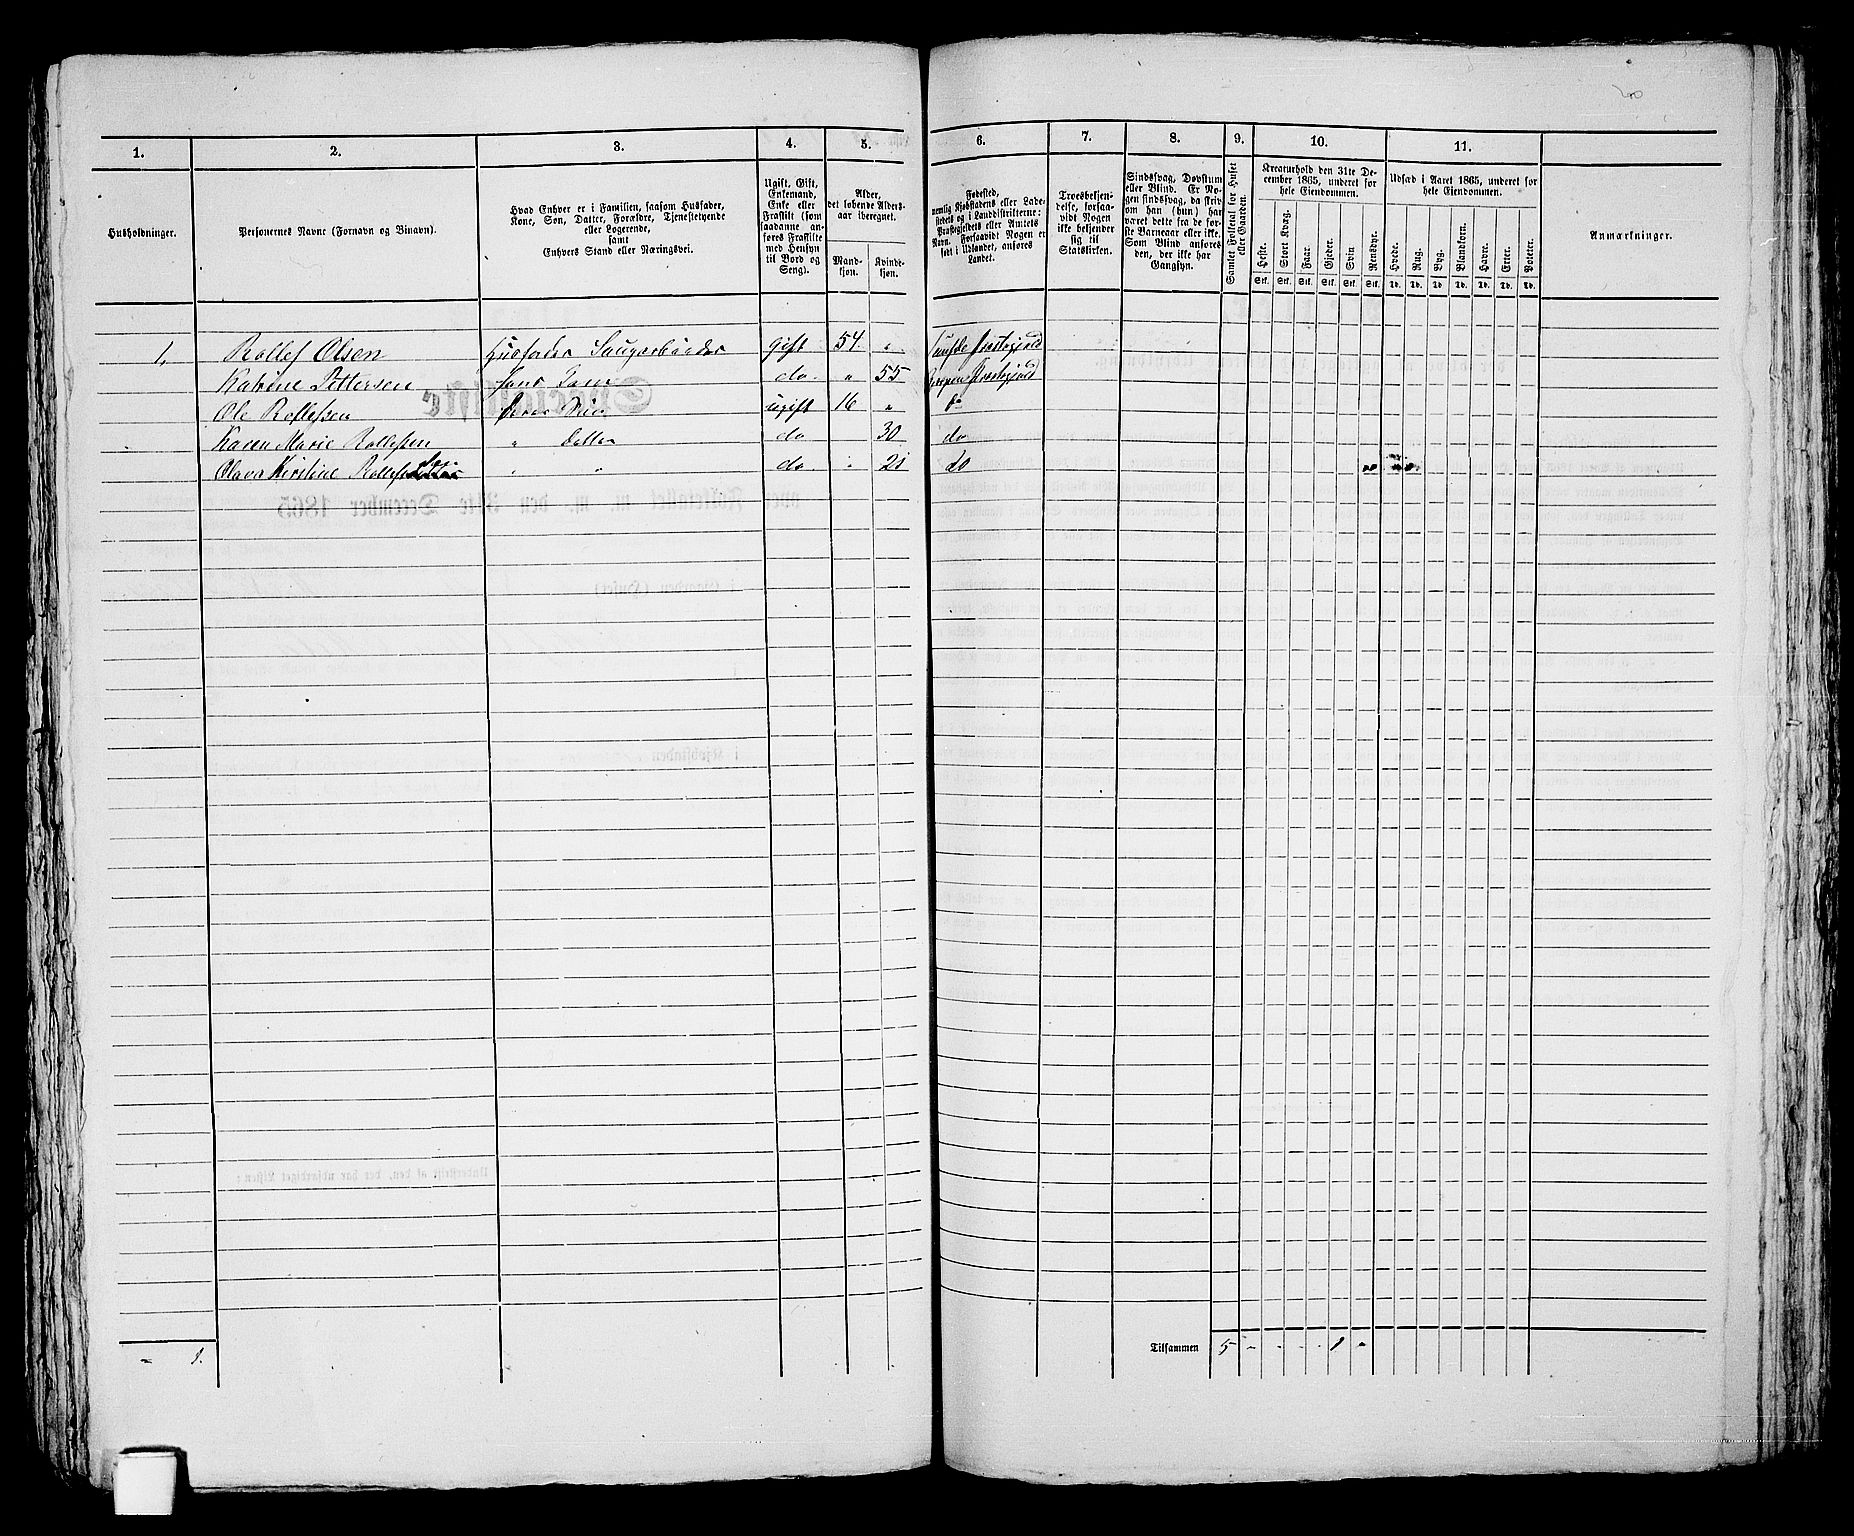 1. 2. 3. 4. 5. 6. 7. 8. 9. 10. 11.
Husholdninger.
Personernes Navne (Fornavn og Binavn).
Hvad Enhver er i Familien, saasom Husfader,
Kone, Søn, Datter, Forældre, Tjenestetyende
eller Logerende,
samt
Enhvers Stand eller Næringsvei.
Ugift, Gift,
Enkemand,
Enke eller
Fraskilt (som
saadanne an-
føres Fraskilte
med Hensyn
til Bord og
Seng).
Alder,
det løbende Alders-
aar iberegnet.
Mand-
kjøn.
Kvinde-
kjøn.
Fødested,
nemlig Kjøbstadens eller Lade-
stedets og i Landdistrikterne:
Præstegjeldets eller Amtets
Navn. Forsaavidt Nogen er
født i Udlandet, anføres
Landet.
Troesbekjen-
delse, forsaa-
vidt Nogen
ikke bekjender
sig til
Statskirken.
Sindssvag, Døvstum
eller Blind. Er No-
gen sindssvag, da skriv
om han (hun) har
været dette fra de før-
ste Barneaar eller ikke.
Som Blind anføres
den, der ikke har
Gangsyn.
Samlet Folketal for Huset
eller Gaarden.
Kreaturhold den 31te De-
cember 1865, underet for
hele Eiendommen.
Heste. Stort Kvæg. Faar. Gjeder. Svin Rensdyr.
Stk. Stk. Stk. Stk. Stk. Stk.
Udsæd i Aaret 1865, underet for
hele Eiendommen.
Hvede. Rug. Byg. Blandkorn. Havre. Erter. Poteter.
Td. Td. Td. Td. Td. Td. Td.
Anmærkninger.
1. Rollef Olsen Husfader gift 54. "
Katrine Pettersen do. " 55
Ole Rollefsen ugift 16 " do
Karen Marie Rollefsen " Datter do 30 do
Olava Kirstine " " do. " 21 do
1. Tilsammen 5 - - - - 1 -